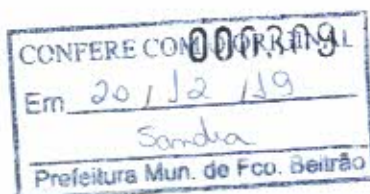 CONFERE COM O ORIGINAL
000309
Em 20 / 12 / 19
Sandra
Prefeitura Mun. de Fco. Beltrão